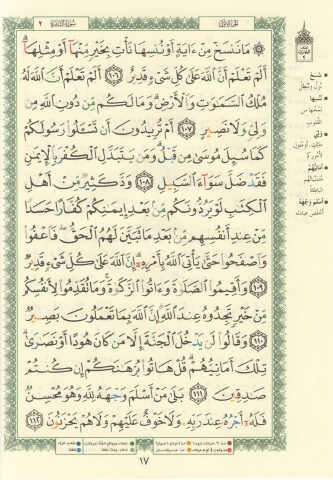 الجزء الأول
سورة البقرة ٢
۞ مَا نَنسَخْ مِنْ ءَايَةٍ أَوْ نُنسِهَا نَأْتِ بِخَيْرٍ مِّنْهَآ أَوْ مِثْلِهَآ ۗ
أَلَمْ تَعْلَمْ أَنَّ ٱللَّهَ عَلَىٰ كُلِّ شَىْءٍ قَدِيرٌ ١٠٦ أَلَمْ تَعْلَمْ أَنَّ ٱللَّهَ لَهُۥ
مُلْكُ ٱلسَّمَٰوَٰتِ وَٱلْأَرْضِ ۗ وَمَا لَكُم مِّن دُونِ ٱللَّهِ مِن
وَلِىٍّ وَلَا نَصِيرٍ ١٠٧ أَمْ تُرِيدُونَ أَن تَسْـَٔلُوا۟ رَسُولَكُمْ
كَمَا سُئِلَ مُوسَىٰ مِن قَبْلُ ۗ وَمَن يَتَبَدَّلِ ٱلْكُفْرَ بِٱلْإِيمَٰنِ
فَقَدْ ضَلَّ سَوَآءَ ٱلسَّبِيلِ ١٠٨ وَدَّ كَثِيرٌ مِّنْ أَهْلِ
ٱلْكِتَٰبِ لَوْ يَرُدُّونَكُم مِّنۢ بَعْدِ إِيمَٰنِكُمْ كُفَّارًا حَسَدًا
مِّنْ عِندِ أَنفُسِهِم مِّنۢ بَعْدِ مَا تَبَيَّنَ لَهُمُ ٱلْحَقُّ ۖ فَٱعْفُوا۟
وَٱصْفَحُوا۟ حَتَّىٰ يَأْتِىَ ٱللَّهُ بِأَمْرِهِۦٓ ۗ إِنَّ ٱللَّهَ عَلَىٰ كُلِّ شَىْءٍ قَدِيرٌ
١٠٩ وَأَقِيمُوا۟ ٱلصَّلَوٰةَ وَءَاتُوا۟ ٱلزَّكَوٰةَ ۚ وَمَا تُقَدِّمُوا۟ لِأَنفُسِكُم
مِّنْ خَيْرٍ تَجِدُوهُ عِندَ ٱللَّهِ ۗ إِنَّ ٱللَّهَ بِمَا تَعْمَلُونَ بَصِيرٌ
١١٠ وَقَالُوا۟ لَن يَدْخُلَ ٱلْجَنَّةَ إِلَّا مَن كَانَ هُودًا أَوْ نَصَٰرَىٰ ۗ
تِلْكَ أَمَانِيُّهُمْ ۗ قُلْ هَاتُوا۟ بُرْهَٰنَكُمْ إِن كُنتُمْ
صَٰدِقِينَ ١١١ بَلَىٰ مَنْ أَسْلَمَ وَجْهَهُۥ لِلَّهِ وَهُوَ مُحْسِنٌ
فَلَهُۥٓ أَجْرُهُۥ عِندَ رَبِّهِۦ وَلَا خَوْفٌ عَلَيْهِمْ وَلَا هُمْ يَحْزَنُونَ ١١٢
١٧